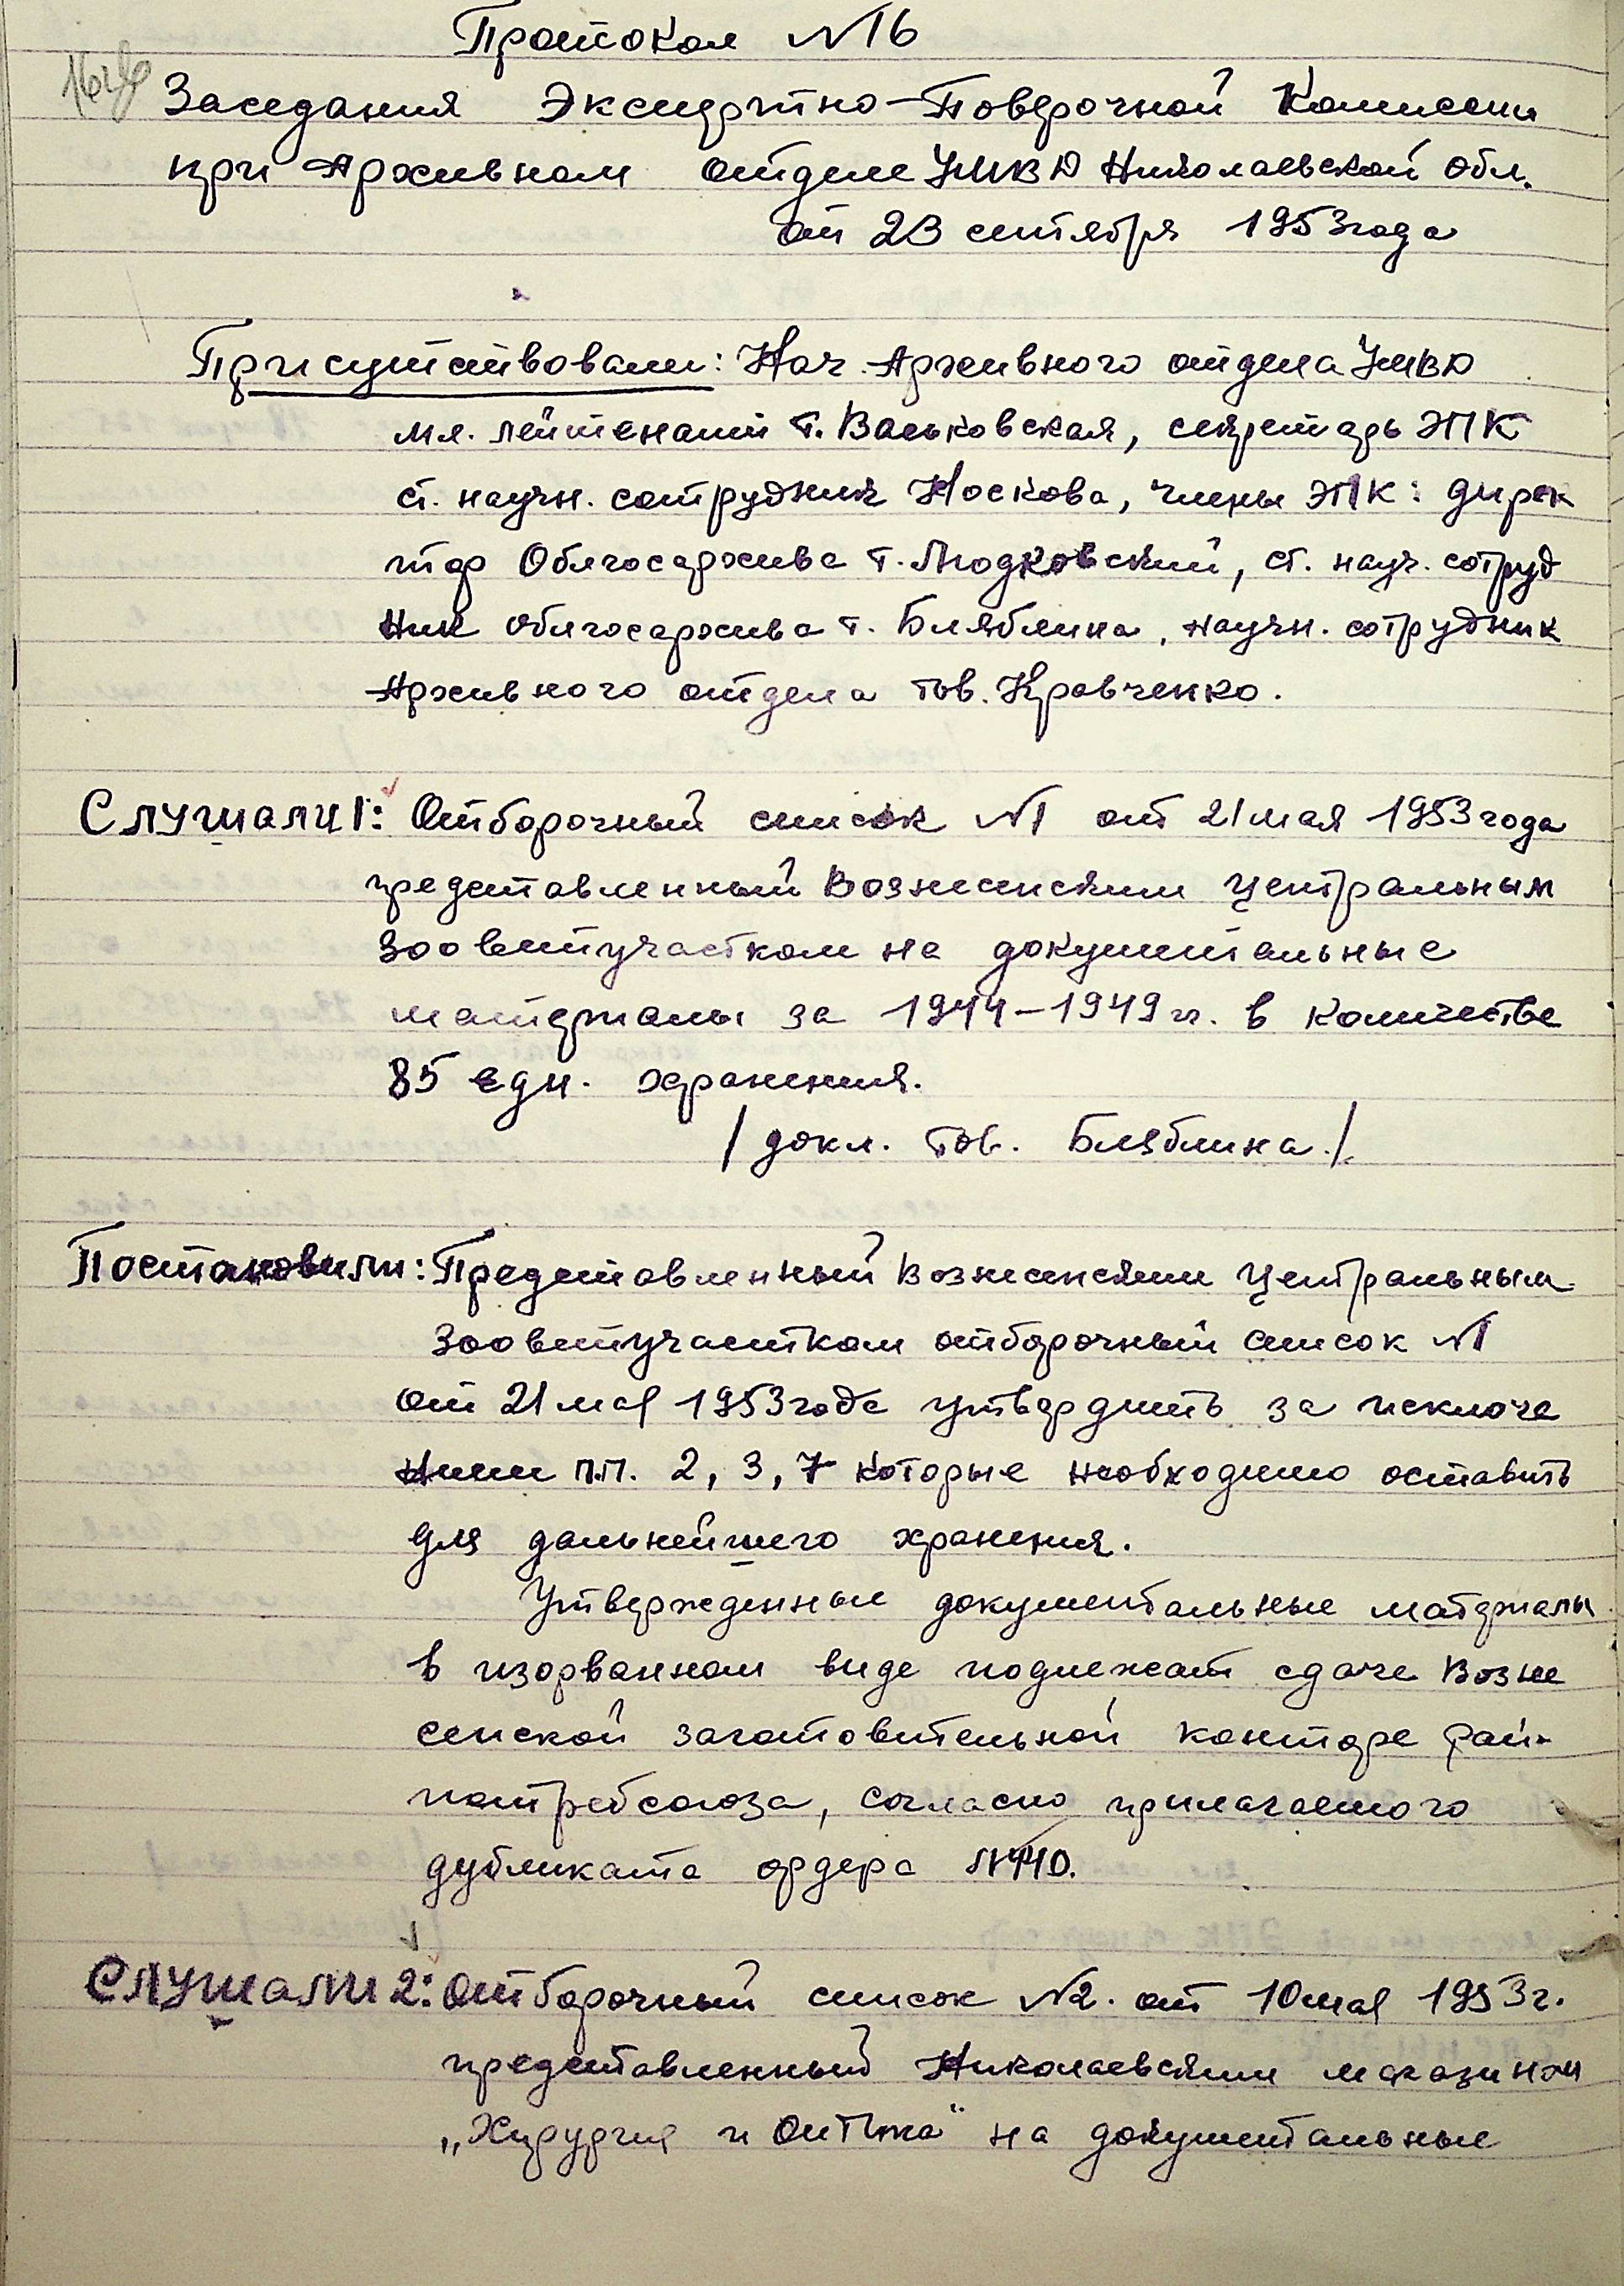 Протокол №16
Заседания Экспертно-Поверочной Комиссии
при Архивном отделе УМВД Николаевской обл.
от 23 сентября 1953 года
Присутствовали: Нач. Архивного отдела УМВД
мл. лейтенант т. Васьковская, секретарь ЭПК
ст. научн. сотрудник Носкова, члены ЭПК: дирек
тор Облгосархива т. Людковский, ст. науч. сотруд
ник облгосархива т. Бляблина, научн. сотрудник
Архивного отдела тов. Кравченко.
Слушали 1: Отборочный список №1 от 21 мая 1953 года
представленный Вознесенским Центральным
Зооветучастком на документальные
материалы за 1944-1949 гг. в количестве
85 един. хранения.
/докл. тов. Бляблина./
Постановили: Представленный Вознесенским Центральным
Зооветучастком отборочный список №1
от 21 мая 1953 года утвердить за исключе
нием п.п. 2, 3, 7 которые необходимо оставить
для дальнейшего хранения.
Утвержденные документальные материалы
в изорванном виде подлежат сдаче Возне
сенской заготовительной конторе рай-
потребсоюза, согласно прилагаемого
дубликата ордера
Слушали 2: Отборочный список №2. от 10 мая 1953 г.
представленный Николаевским магазином
„Хирургия и Оптика" на документальные